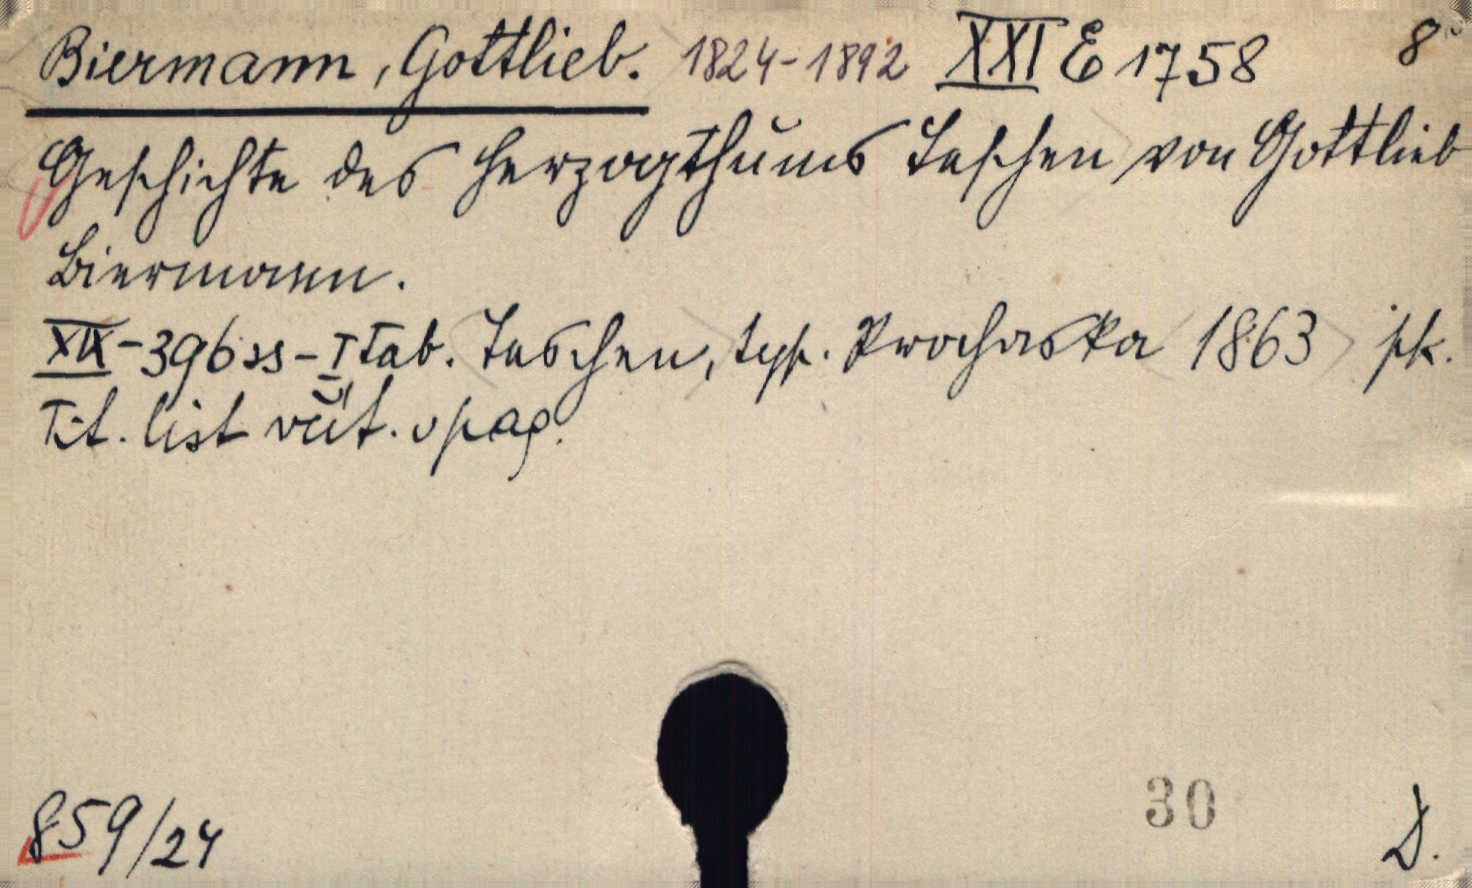 Biermann, Gottlieb. 1824-1892 XXI E 1758 8°
Geschichte des Herzogthums Teschen von Gottlieb
Biermann.
XIX-396 ss - I tab. Teschen, typ. Prochaska 1863 pk.
Tit. list opag.
859/24 30 D.